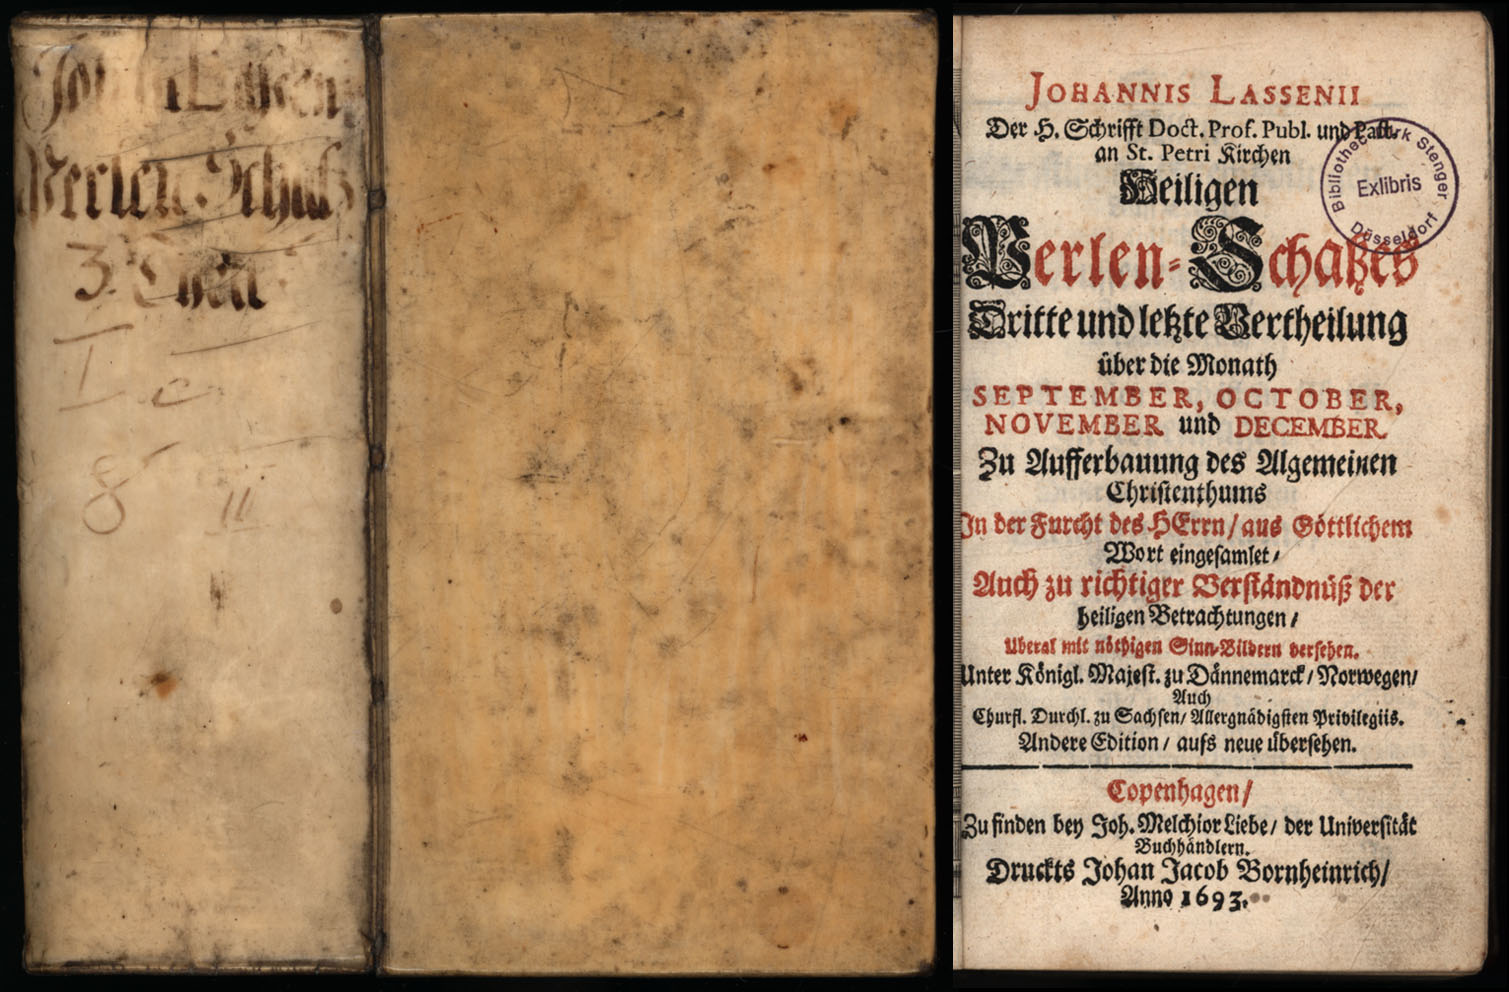 Perlen-Schatz
3. Theil
I.
8
II
JOHANNIS LASSENII
Der H. Schrifft Doct. Prof. Publ. und Past.
an St. Petri Kirchen
Heiligen
Perlen-Schatzes
Dritte und letzte Vertheilung
über die Monath
SEPTEMBER, OCTOBER,
NOVEMBER und DECEMBER
Zu Aufferbauung des Algemeinen
Christenthums
In der Furcht des HErrn/ aus Göttlichem
Wort eingesamlet/
Auch zu richtiger Verständnüß der
heiligen Betrachtungen/
Uberal mit nöthigen Sinn-Bildern versehen.
Unter Königl. Majest. zu Dännemarck/ Norwegen/
Auch
Churfl. Durchl. zu Sachsen/ Allergnädigsten Privilegiis.
Andere Edition/ aufs neue übersehen.
Copenhagen/
Zu finden bey Joh. Melchior Liebe/ der Universität
Buchhändlern.
Druckts Johan Jacob Bornheinrich/
Anno 1693.
Dirk Stenger
Exlibris
Düsseldorf